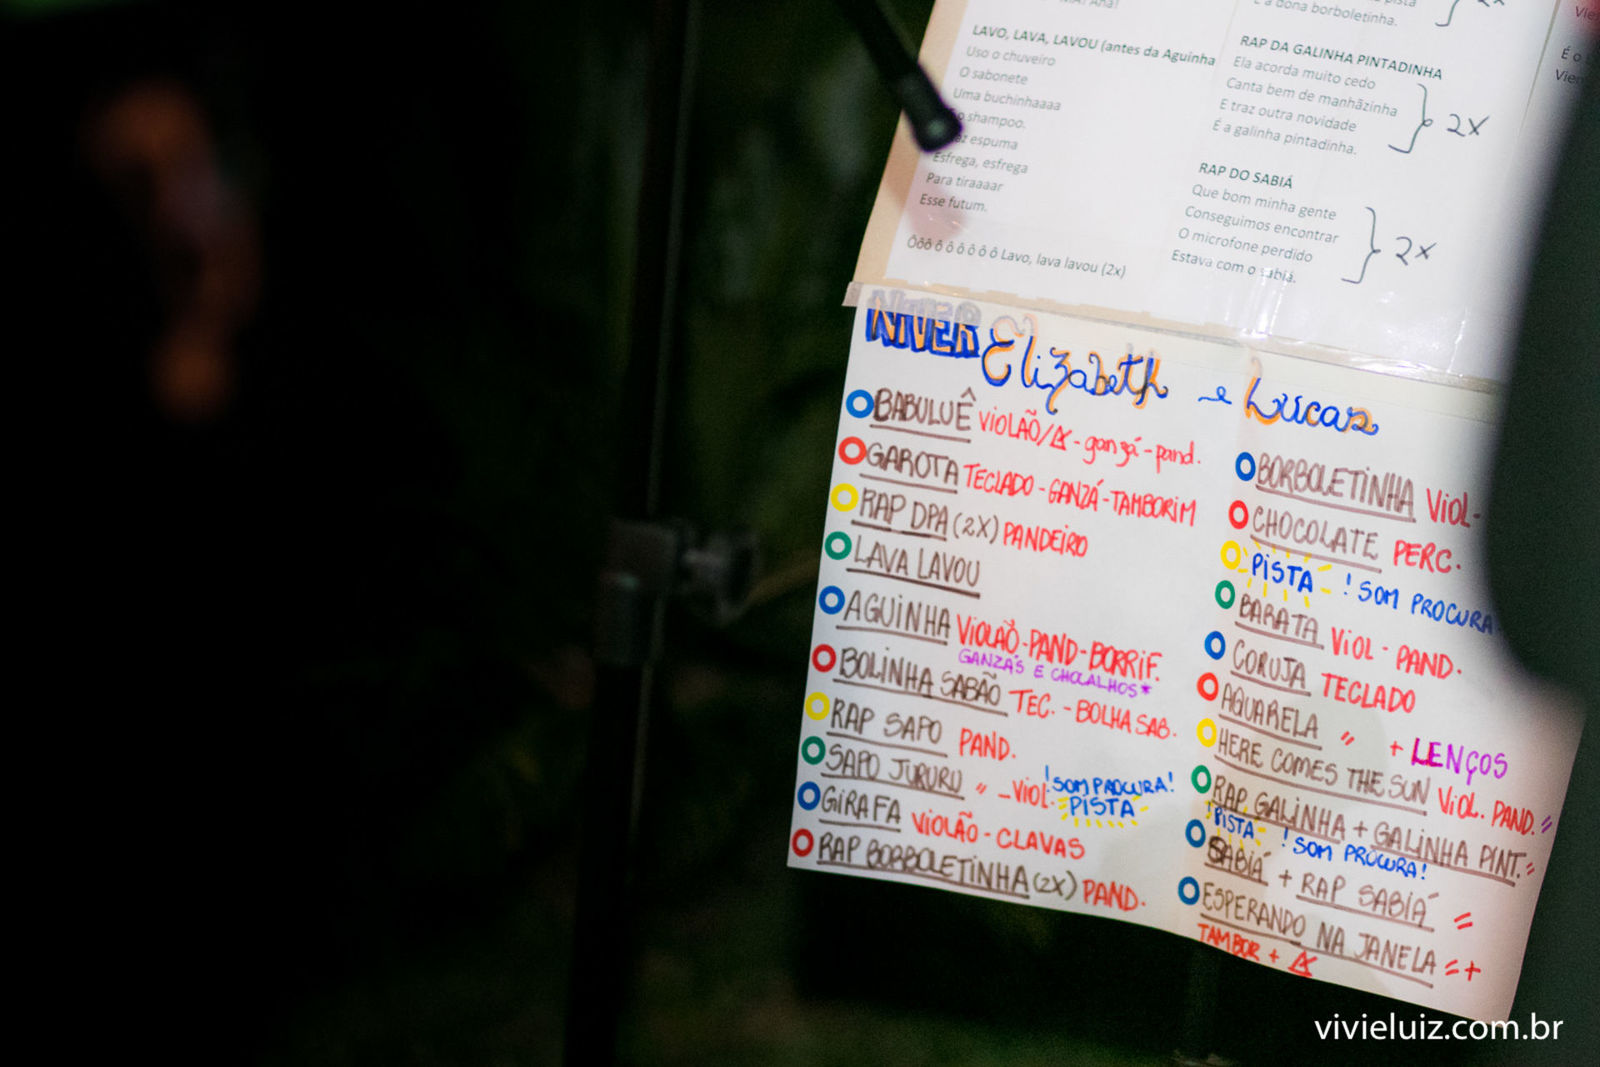 Ana!
LAVO, LAVA, LAVOU (antes da Aguinha
Uso o chuveiro
O sabonete
Uma buchinhaaaa
o shampoo.
espuma
Esfrega, esfrega
Para tiraaaar
Esse futum.
Ôôô ô ô ô ô ô ô Lavo, lava lavou (2x)
pista
É a dona borboletinha.
2x
RAP DA GALINHA PINTADINHA
Ela acorda muito cedo
Canta bem de manhãzinha
E traz outra novidade
É a galinha pintadinha.
2X
RAP DO SABIÁ
Que bom minha gente
Conseguimos encontrar
O microfone perdido
Estava com o sabiá.
2x
É o
NIVER Elizabeth e Lucas
BABULUÊ VIOLÃO/ - ganzá - pand.
GAROTA TECLADO - GANZÁ - TAMBORIM
RAP DPA (2X) PANDEIRO
LAVA LAVOU
AGUINHA VIOLÃO - PAND - BORRIF.
GANZÁS E CHOCALHOS*
BOLINHA SABÃO TEC. - BOLHA SAB.
RAP SAPO PAND.
SAPO JURURU " - VIOL. !SOM PROCURA!
PISTA
GIRAFA VIOLÃO - CLAVAS
RAP BORBOLETINHA (2X) PAND.
BORBOLETINHA VIOL-
CHOCOLATE PERC.
PISTA - ! SOM PROCURA
BARATA VIOL - PAND.
CORUJA TECLADO
AQUARELA " + LENÇOS
HERE COMES THE SUN VIOL. PAND. "
RAP GALINHA + GALINHA PINT. "
!PISTA - ! SOM PROCURA!
SABIÁ + RAP SABIÁ "
ESPERANDO NA JANELA " +
TAMBOR +
vivieluiz.com.br